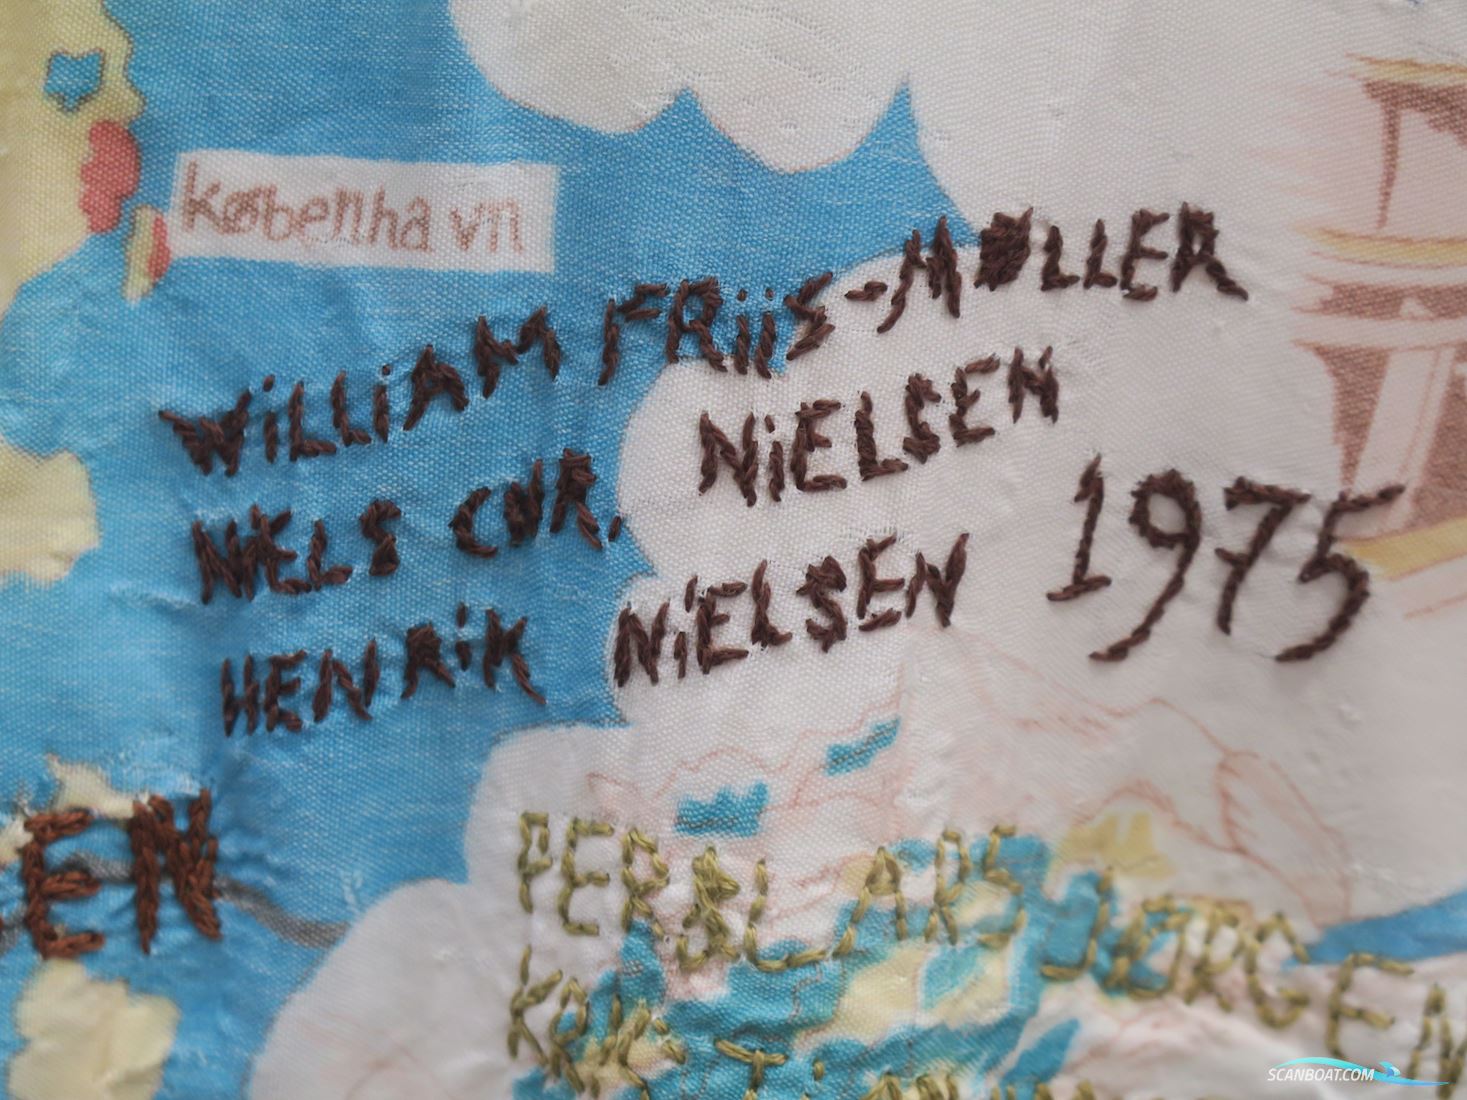 københavn
WiLLiAM FRiiS-MØLLER
NiELS CHR. NiELSEN
HENRiK NiELSEN 1975
EN
PER & LARS JØRGEN
SCANBOAT.COM